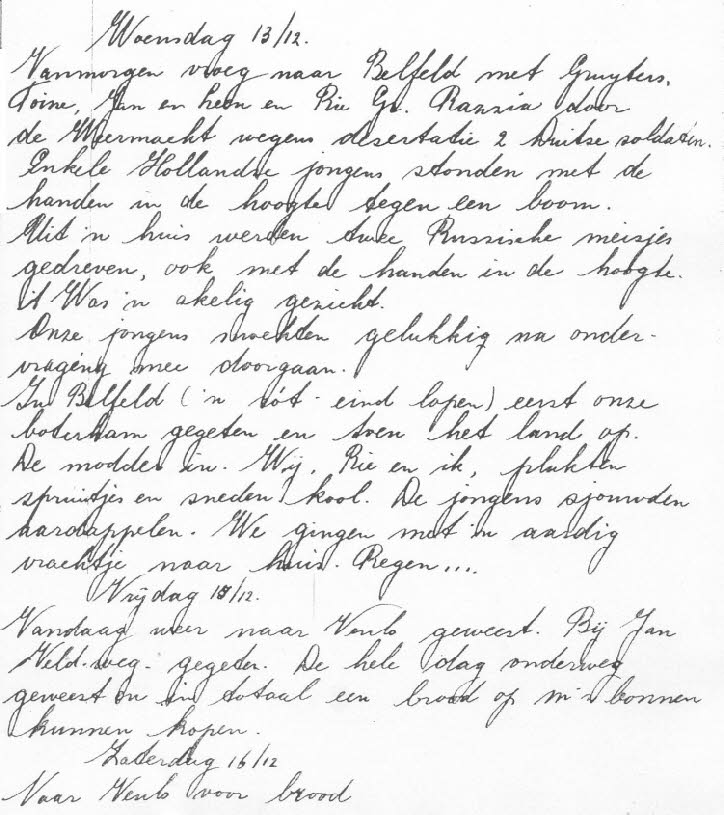 Woensdag 13/12.
Vanmorgen vroeg naar Belfeld met Gruyters,
Toine, Jan en hem en Rie Gr. Razzia door
de Weermacht wegens desertatie 2 Duitse soldaten.
Enkele Hollandse jongens stonden met de
handen in de hoogte tegen een boom.
Uit 'n huis werden twee Russische meisjes
gedreven, ook met de handen in de hoogte.
't Was 'n akelig gezicht.
Onze jongens mochten gelukkig na onder-
vraging mee doorgaan.
In Belfeld ('n rót-eind lopen) eerst onze
boterham gegeten en toen het land op.
De modder in. Wij, Rie en ik, plukten
spruitjes en sneden kool. De jongens sjouwden
aardappelen. We gingen met 'n aardig
vrachtje naar huis. Regen...
Vrijdag 15/12.
Vandaag weer naar Venlo geweest. Bij Jan
Veld-weg- gegeten. De hele dag onderweg
geweest en in totaal een brood op m'n bonnen
kunnen kopen.
Zaterdag 16/12
Naar Venlo voor brood